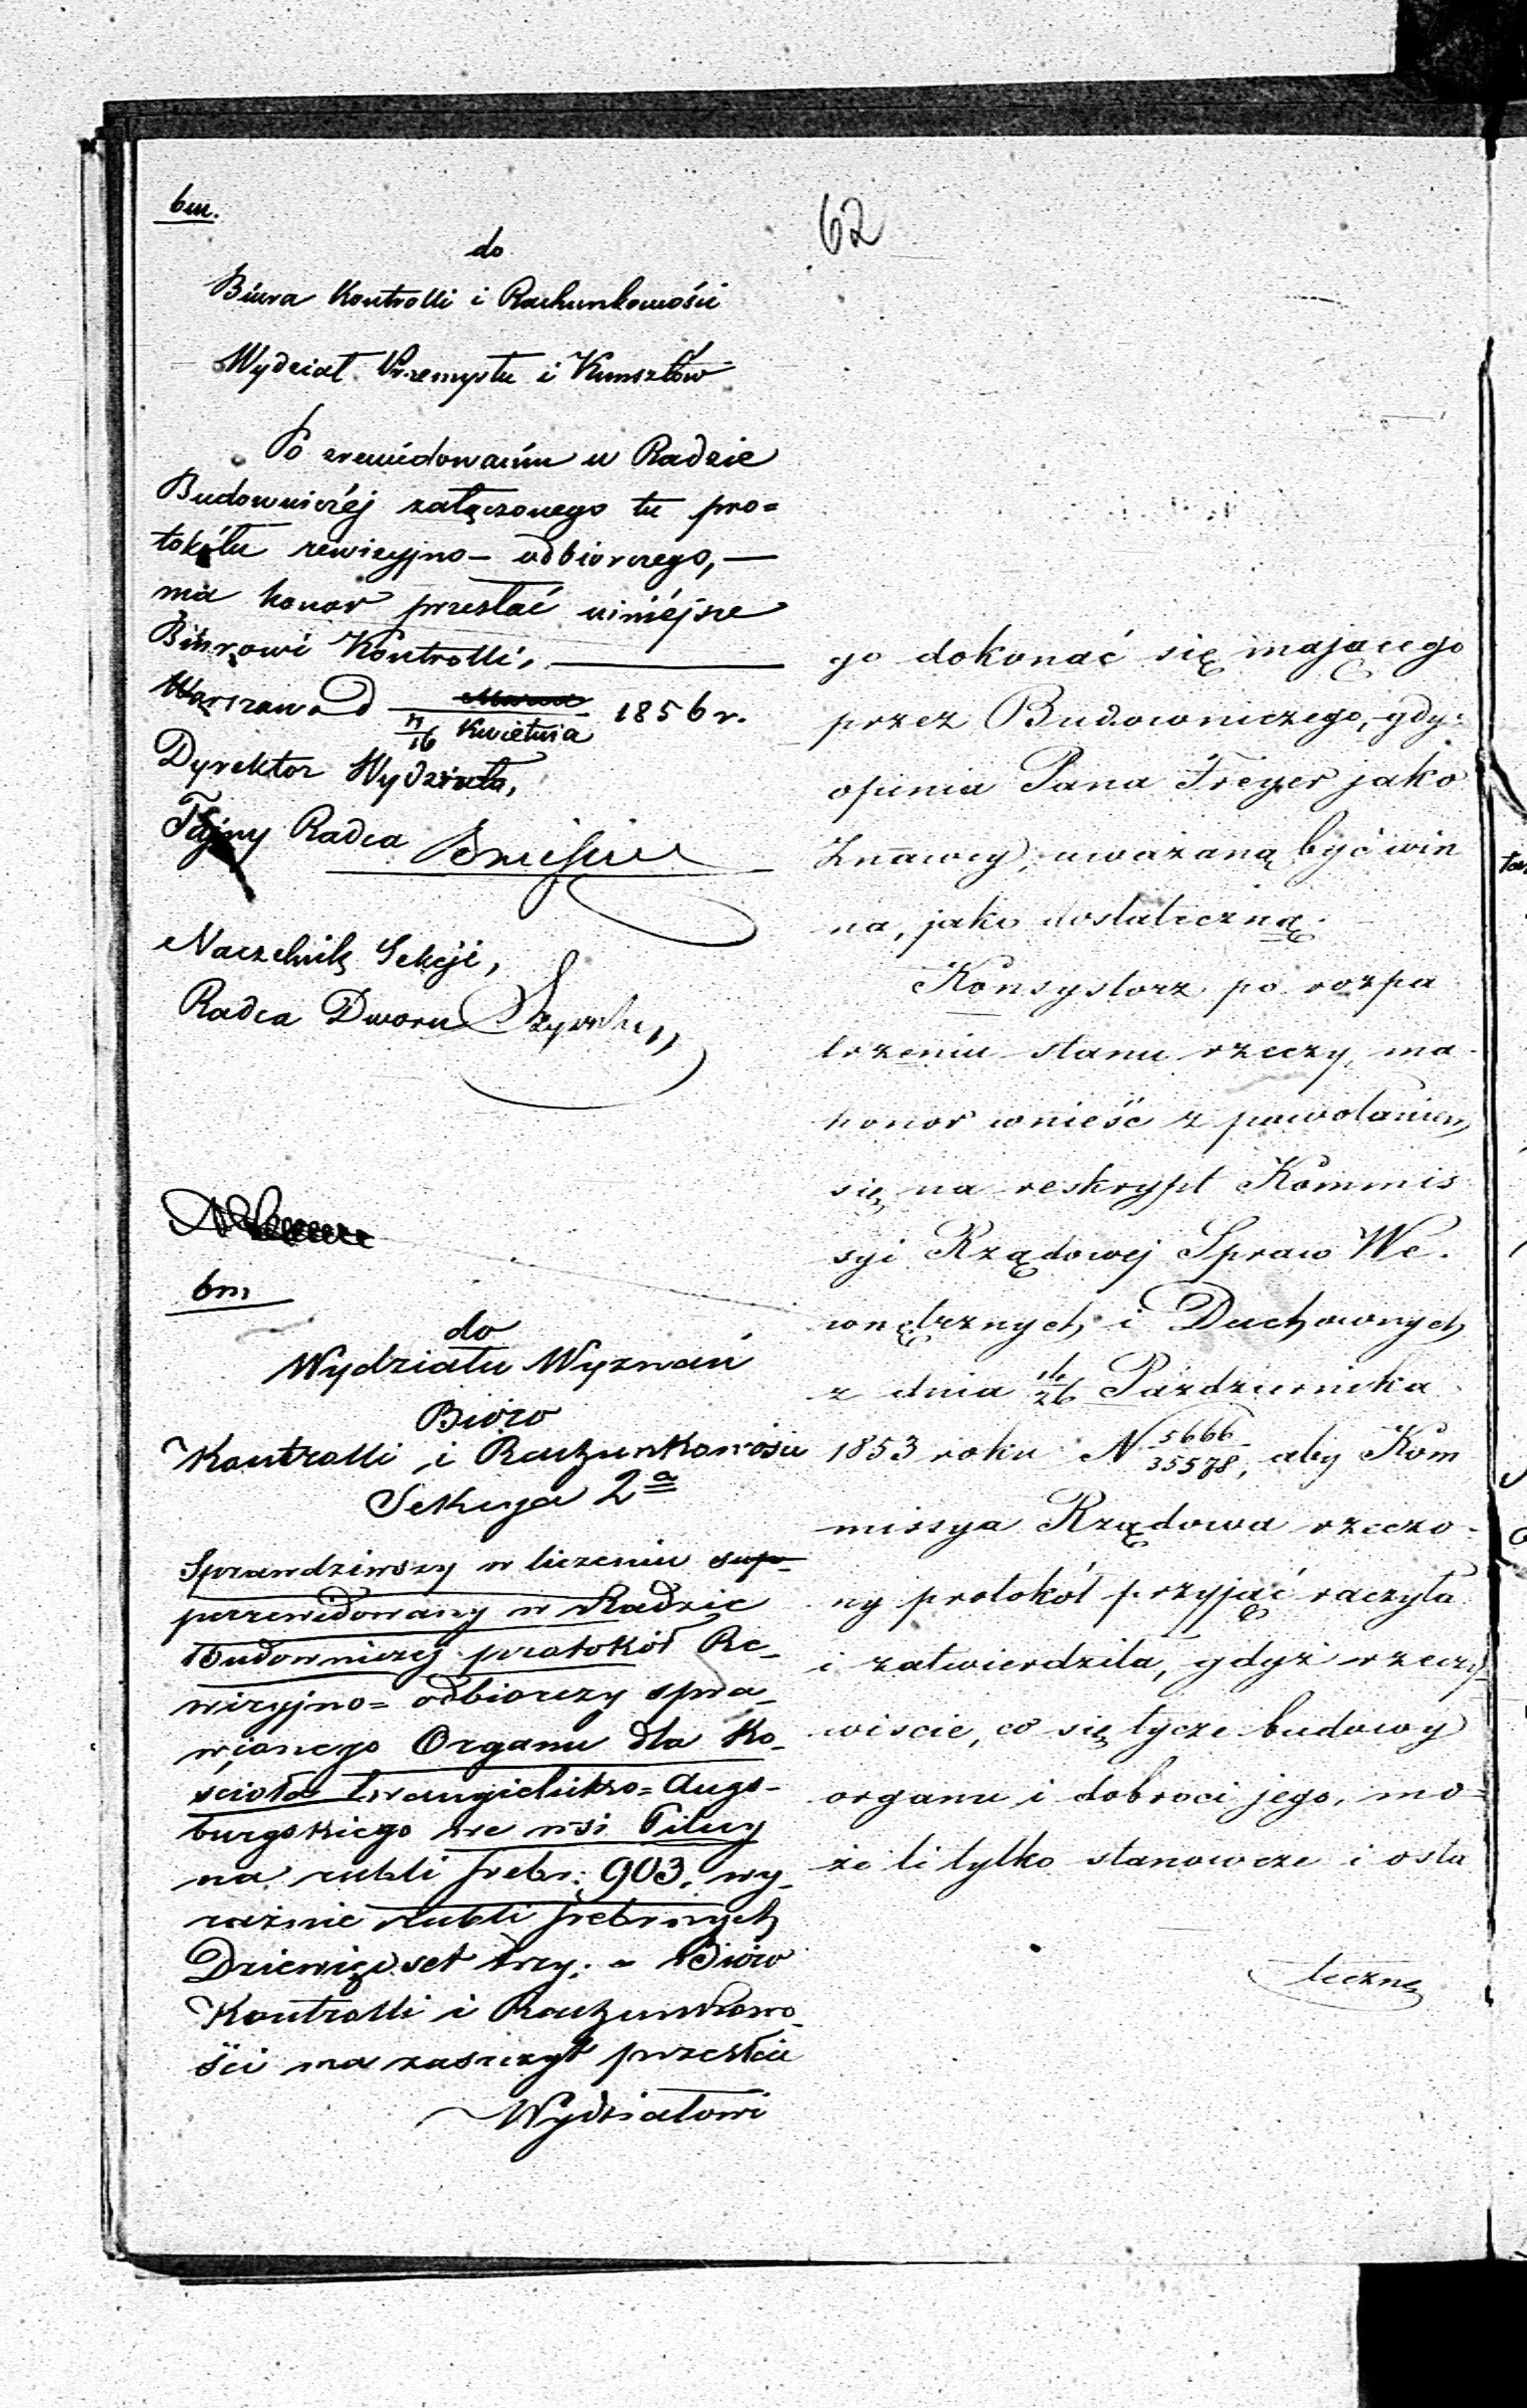 62
bm.
do
Biura Kontrolli i Rachunkowości
Wydział Przemysłu i Kunsztów
Po zrewidowaniu w Radzie
Budowniczéj załączonego tu pro=
tokółu rewizyjno- odbiorczego,—
ma honor przesłać niniéjsze
Biurowi Kontrolli,
Warszawa d 4/16 Kwietnia 1856 r.
Dyrektor Wydziału,
Tajny Radca
Naczelnik Sekcji,
Radca Dworu
bm
do
Wydziału Wyznań
Bióro
Kontrolli i Rachunkowości
Sekcya 2a
Sprawdziwszy w liczeniu
przerewidowany w Radzie
Budowniczej protokół Re-
wizyjno= odbiorczy spra-
wionego Organu dla Ko-
scioła Ewangielicko= Augs-
burgskiego we wsi Pilicy
na rubli srebr: 903. wy-
raźnie rubli srebrnych
Dziewięcset trzy. - Bióro
Kontrolli i Rachunkowo-
ści ma zaszczyt przesłać
Wydziałowi
go dokonać się mającego
przez Budowniczego, gdy=
opinia Pana Freyer jako
Znawcy, uważaną być win
na, jako dostateczną.
Konsystorz po rozpa
trzeniu stanu rzeczy, ma
honor wnieść z powołaniem
się na reskrypt Kommis
syi Rządowej Spraw We.
wnętrznych i Duchownych
z dnia 14/26 Października
1853 roku N 5666/35578, aby Kom
missya Rządowa rzeczo=
ny protokół przyjąć raczyła
i zatwierdziła, gdyż rzeczy=
wiscie, co się tycze budowy
organu i dobroci jego, mo=
że li tylko stanowcze i osta
teczne